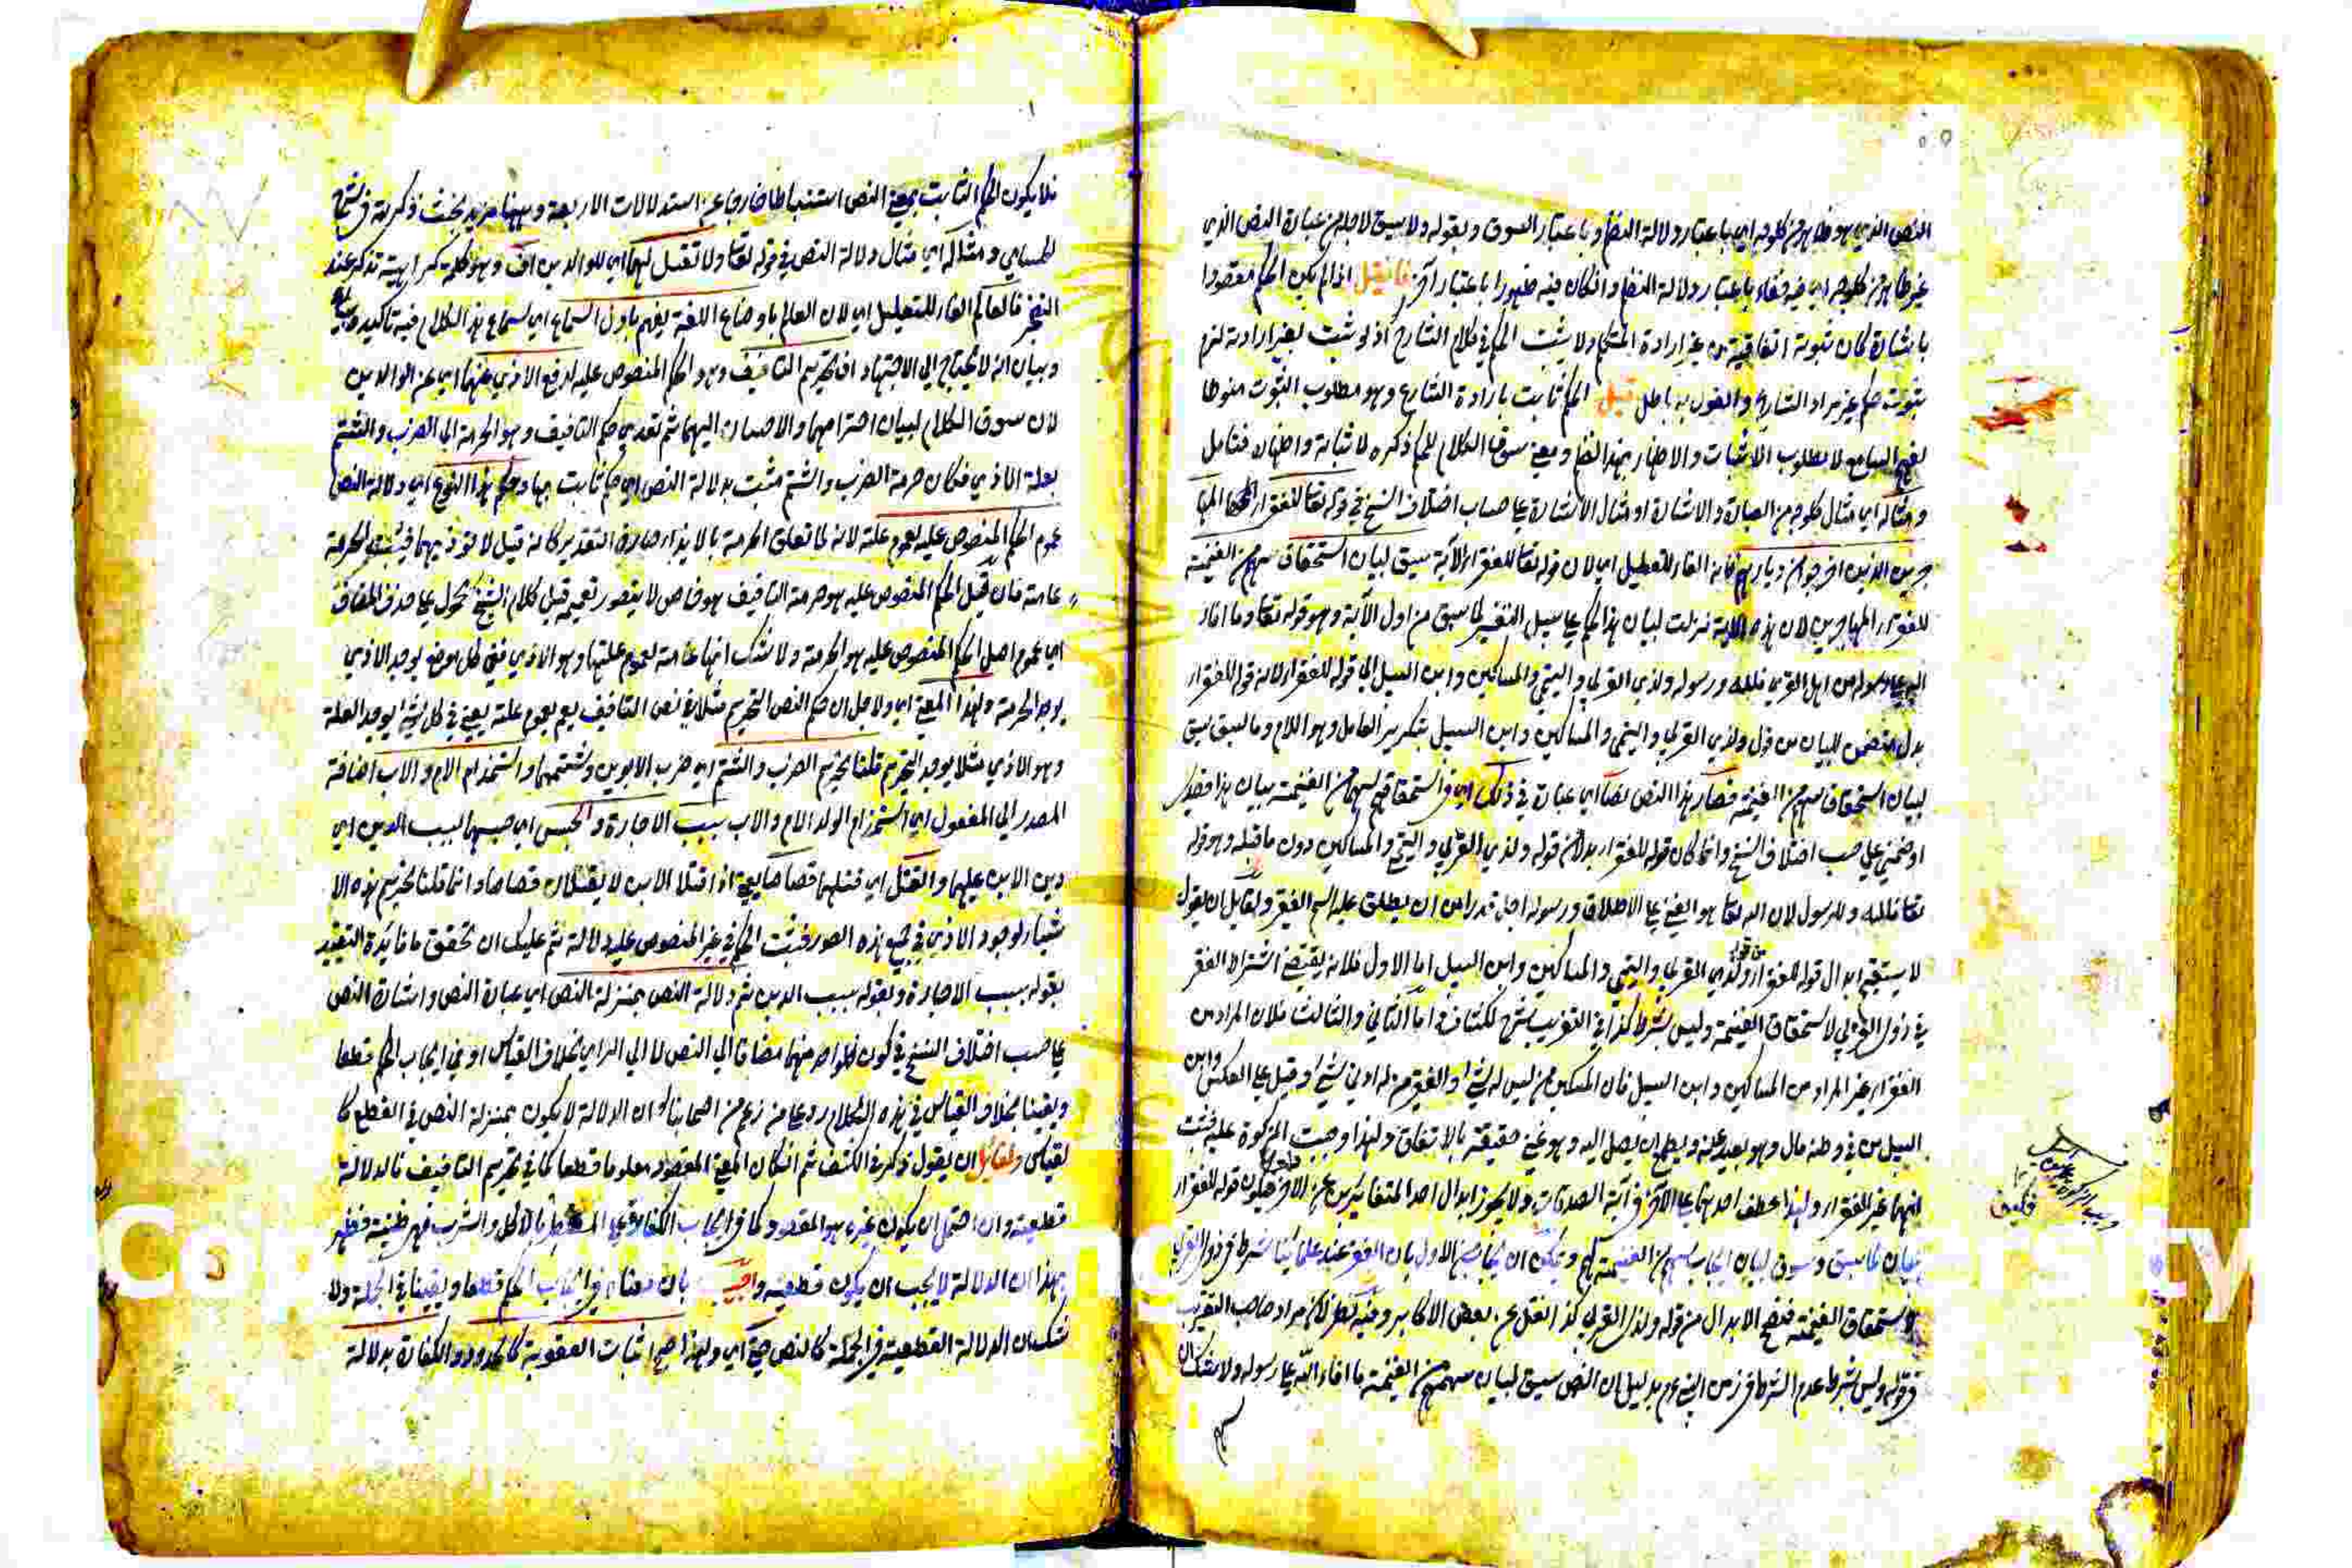 النص الذي هو ظاهر من كل وجه اي باعتبار دلالة النظم وباعتبار السوق وبقوله ولا سيق لاجله من عبارة النص الذي
غير ظاهر من كل وجه اي فيه خفاء باعتبار دلالة النظم وانكان فيه ظهورا باعتبار آخر فان قيل اذا لم يكن الحكم مقصودا
باشارة كان ثبوته اتفاقية من غير ارادة المتكلم ولا يثبت الحكم في كلام الشارع اذ لو ثبت لغير ارادته لزم
ثبوت حكم غير مراد الشارع والقول به باطل قيل الحكم ثابت بارادة الشارع وهو مطلوب الثبوت منوطا
لفهم السامع لا مطلوب الاثبات والاظهار بهذا النظم ومعنى سوق الكلام للحكم ذكره لاثباته واظهاره فتامل
ومثاله اي مثال كل وجه من العبارة والاشارة او مثال الاشارة على حساب اختلاف النسخ في قوله تعالى للفقراء المها
جرين الذين اخرجوا من ديارهم فانه الفاء للتعليل اي لان قوله تعالى للفقراء الآية سيق لبيان استحقاق سهم من الغنيمة
للفقراء المهاجرين لان هذه الاية نزلت لبيان هذا الحكم على سبيل التفسير لما سبق من اول الآية وهو قوله تعالى وما افاء
الله على رسوله من اهل القرى فلله ورسوله ولذي القربى واليتمى والمساكين وابن السبيل الى قوله للفقراء لانه قوله للفقراء
بدل متضمن للبيان من قول ولذي القربى واليتمى والمساكين وابن السبيل بتكرير العامل وهو اللام وما سبق سيق
لبيان استحقاق سهم من الغنيمة فصار هذا النص نصا اي عبارة في ذلك اي في استحقاقهم لسهم من الغنيمة بيان
على حسب اختلاف النسخ وانما كان قوله للفقراء بدلا من قوله ولذي القربى واليتمى والمساكين دون ما قبله وهو قوله
تعالى فلله وللرسول لان الله تعالى هو الغني على الاطلاق ورسوله اجل قدرا من ان يطلق عليه اسم الفقر ولقائل ان يقول
لا يستقيم ابدال قوله للفقراء من قوله ولذي القربى واليتمى والمساكين وابن السبيل اما الاول فلانه يقتضي اشتراط الفقر
في ذوي القربى لاستحقاق الغنيمة وليس بشرط كذا في التقريب شرح لكشاف واما الثاني والثالث فلان المراد من
الفقراء غير المراد من المساكين وابن السبيل فان المسكين من ليس له شيء والفقير من له ادنى شيء وقيل على العكس وابن
السبيل من في وطنه مال وهو بعيد عنه ويطمع ان يصل اليه وهو غني حقيقة بالاتفاق ولهذا وجبت الزكوة عليه فثبت
انهما غير الفقراء ولهذا عطف احدهما على الآخر في آية الصدقات ولا يجوز ابدال احد المتغايرين عن الآخر فيكون قوله للفقراء
بيان لما سبق وسوق لبيان ايجاب سهم من الغنيمة لهم ويمكن ان يجاب عن الاول بان الفقر عند علمائنا شرط في ذوي القربى
لاستحقاق الغنيمة فصح الابدال من قوله ولذي القربى كذا نقل عن بعض الاكابر وفيه نظر لان مراد صاحب التقريب
في قوله وليس بشرط عدم الشرط في زمن النبي عم بدليل ان النص سيق لبيان سهمهم من الغنيمة ما افاء الله على رسوله ولا شك ان
فلا يكون الحكم الثابت بمعنى النص استنباطا خارجا عن استدلالات الاربعة وههنا مزيد بحث ذكرته في شرح
لحسامي ومثاله اي مثال دلالة النص في قوله تعالى ولا تقل لهما اي للوالدين اف وهو كلمة كراهية تذكر عند
التضجر فالعالم الفاء للتعليل اي لان العالم باوضاع اللغة يفهم باول السماع اي لسماع هذا الكلام فيه تاكيد
وبيان انه لا يحتاج الى الاجتهاد ان تحريم التافيف وهو الحكم المنصوص عليه لدفع الاذى عنهما اي عن الوالدين
لان سوق الكلام لبيان احترامهما والاحسان اليهما ثم تعدى حكم التافيف وهو الحرمة الى الضرب والشتم
بعلة الاذى فكان حرمة الضرب والشتم مثبت بدلالة النص اي حكم ثابت بها وحكم هذا النوع اي دلالة النص
عموم الحكم المنصوص عليه لعموم علته لانه لما تعلق الحرمة بالايذاء صار في التقدير كانه قيل لا تؤذيهما فيثبت الحرمة
عامة فان قيل الحكم المنصوص عليه هو حرمة التافيف هو خاص لا يتصور تعميمه قيل كلام الشيخ محمول على حذف المضاف
اي عموم اصل الحكم المنصوص عليه هو الحرمة ولا شك انها عامة لعموم علتها وهو الاذى ففي كل موضع يوجد الاذى
يوجد الحرمة ولهذا المعنى اي ولاجل ان حكم النص التحريم مثلا في نص التافيف يعم بعموم علته يعني في كل شيء يوجد العلة
وهو الاذى مثلا يوجد التحريم قلنا بتحريم الضرب والشتم اي ضرب الابوين وشتمهما واستخدام الام والاب اضافة
المصدر الى المفعول اي استخدام الولد الام والاب بسبب الاجارة والحبس اي حبسهما لسبب الدين اي
دين الابن عليهما والقتل اي قتلهما قصاصا يعني اذا قتلا الابن لا يقتلان قصاصا وانما قلنا بتحريم هذه الا
شياء لوجود الاذى في جميع هذه الصور فيثبت الحكم في غير المنصوص عليه دلالة ثم عليك ان تحقق ما فائدة التقييد
بقوله بسبب الاجارة وبقوله بسبب الدين ثم دلالة النص بمنزلة النص اي عبارة النص واشارة النص
على حسب اختلاف النسخ في كون كل واحد منهما مضافا الى النص لا الى الراي بخلاف القياس او في ايجاب الحكم قطعا
ويقينا بخلاف القياس في هذه الكلام رد على من زعم من اصحابنا ان الدلالة لا يكون بمنزلة النص في القطع كا
لقياس ولقائل ان يقول ذكر في الكشف ثم انكان المعنى المقصود معلوما قطعا كما في تحريم التافيف فالدلالة
قطعية وان احتمل ان يكون غيره هو المقصود كما في ايجاب الكفارة على المفطر بالاكل والشرب فهي ظنية فظهر
بهذا ان الدلالة لا يجب ان يكون قطعية واجيب بان معناه في ايجاب الحكم قطعا ويقينا في الجملة ولا
شك ان الدلالة القطعية في الجملة كالنص حتى اي ولهذا صح اثبات العقوبة كالحدود والكفارة بدلالة